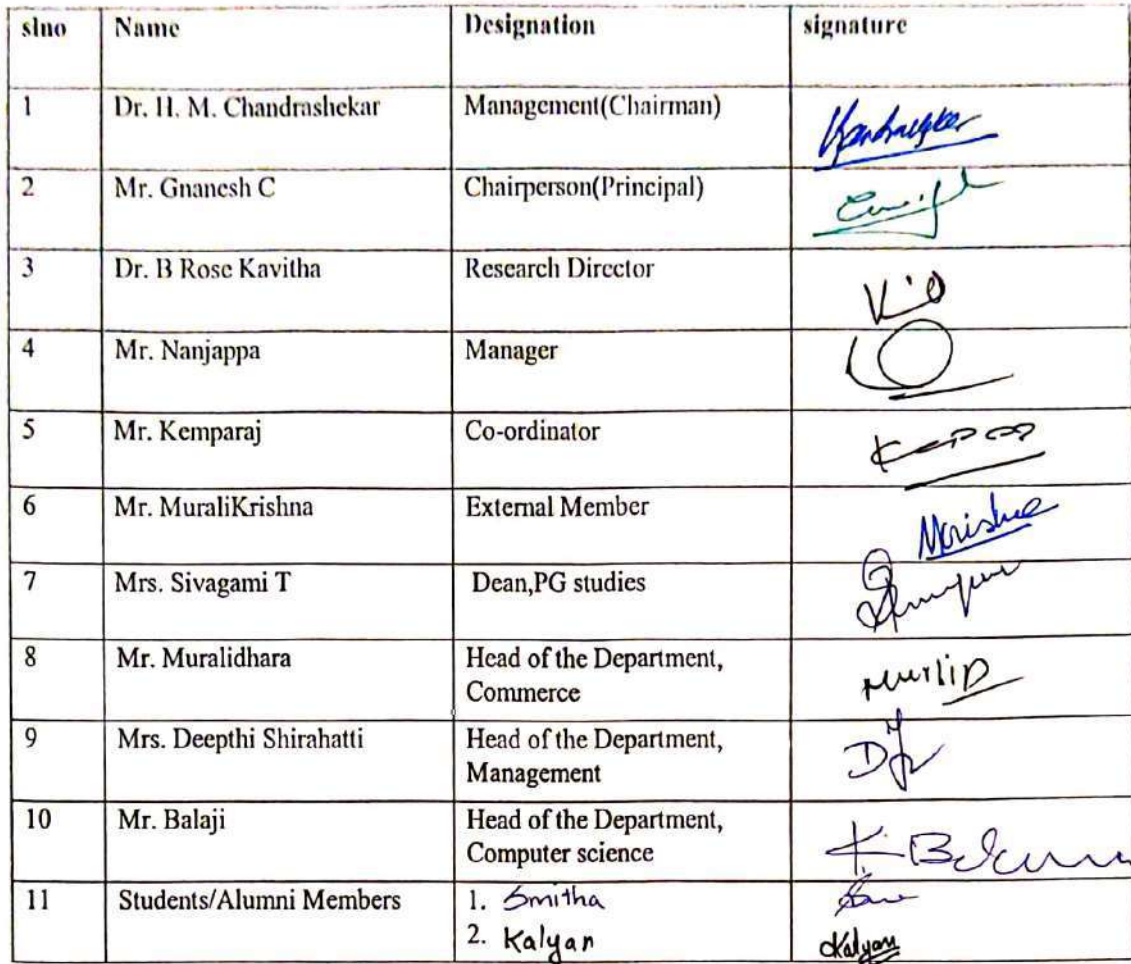 slno Name Designation signature
1 Dr. H. M. Chandrashekar Management(Chairman)
2 Mr. Gnanesh C Chairperson(Principal)
3 Dr. B Rose Kavitha Research Director
4 Mr. Nanjappa Manager
5 Mr. Kemparaj Co-ordinator
6 Mr. MuraliKrishna External Member
7 Mrs. Sivagami T Dean,PG studies
8 Mr. Muralidhara Head of the Department,
Commerce
9 Mrs. Deepthi Shirahatti Head of the Department,
Management
10 Mr. Balaji Head of the Department,
Computer science
11 Students/Alumni Members 1. Smitha
2. Kalyan Kalyan